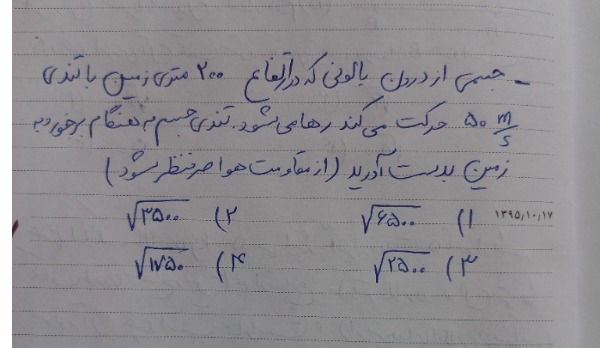 ـ جسمی از درون بالونی که در ارتفاع ۲۰۰ متری زمین با تندی
۵۰ m/s حرکت می‌کند رها می‌شود. تندی جسم به هنگام برخورد به
زمین بدست آورید (از مقاومت هوا صرفنظر شود)
۱) √۶۵۰۰ ۲) √۳۵۰۰
۱۳۹۵٫۱۰٫۱۷
۳) √۲۵۰۰ ۴) √۱۷۵۰